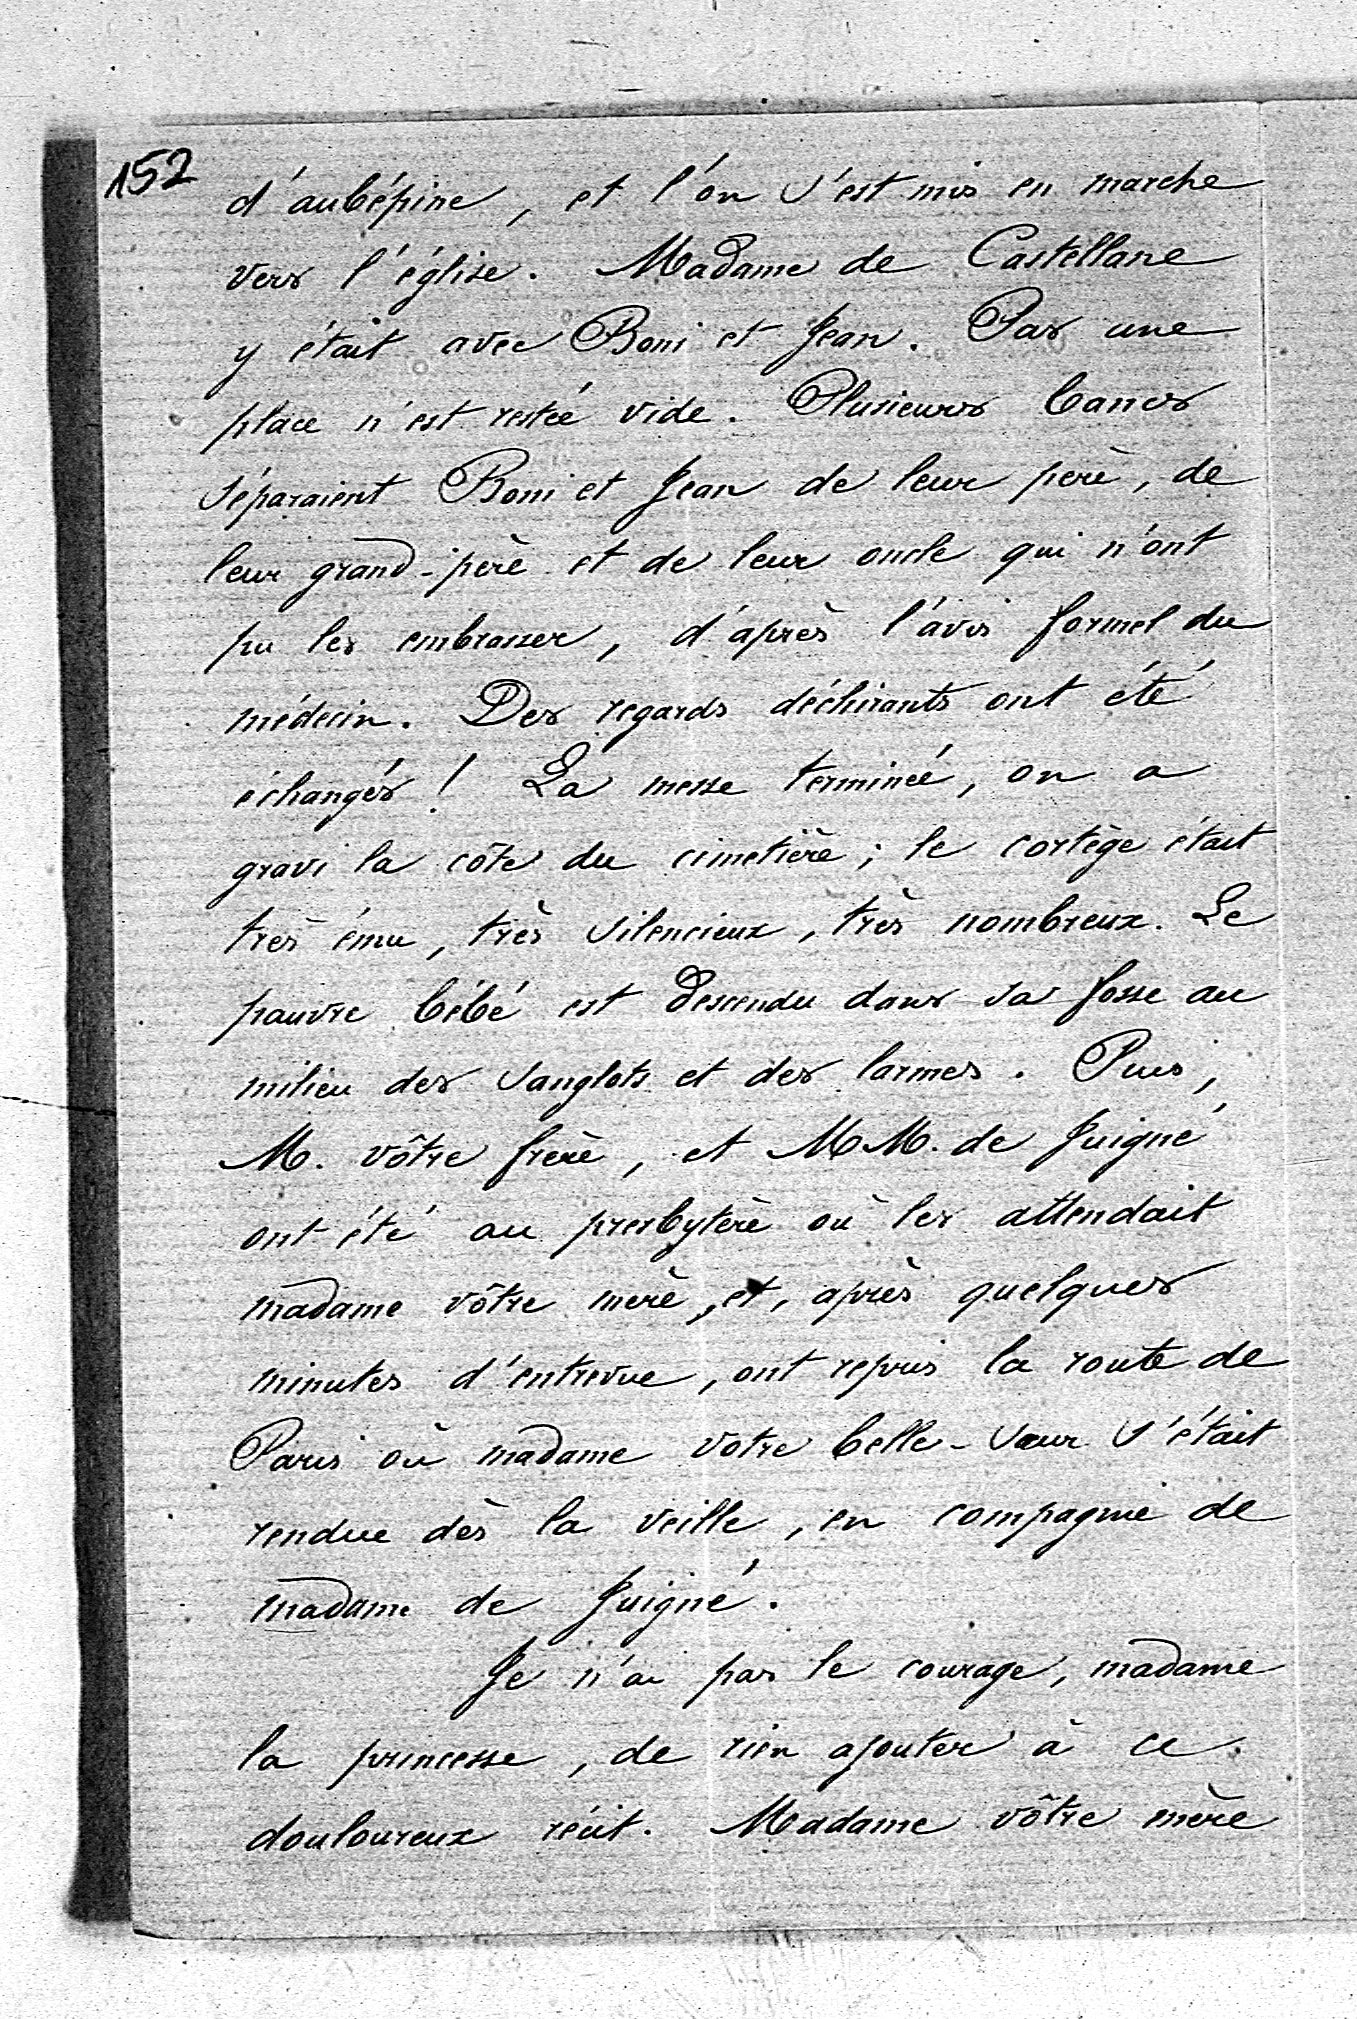 152
d'aubépine, et l'on s'est mis en marche
vers l'église. Madame de Castellane
y était avec Boni et Jean. Pas une
place n'est restée vide. Plusieurs bancs
séparaient Boni et Jean de leur père, de
leur grand-père et de leur oncle qui n'ont
pu les embrasser, d'après l'avis formel du
médecin. Des regards déchirants ont été
échangés ! La messe terminée, on a
gravi la côte du cimetière ; le cortège était
très ému, très silencieux, très nombreux. Le
pauvre bébé est descendu dans sa fosse au
milieu des sanglots et des larmes. Puis,
M. vôtre frère, et MM. de Juigné
ont été au presbytère où les attendait
madame vôtre mère, et, après quelques
minutes d'entrevue, ont repris la route de
Paris où madame votre belle-sœur s'était
rendue dès la veille, en compagnie de
madame de Juigné.
Je n'ai pas le courage, madame
la princesse, de rien ajouter à ce
douloureux récit. Madame vôtre mère